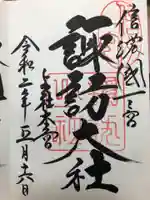 信濃國一之宮
諏訪大社
上社本宮
令和二年五月六日